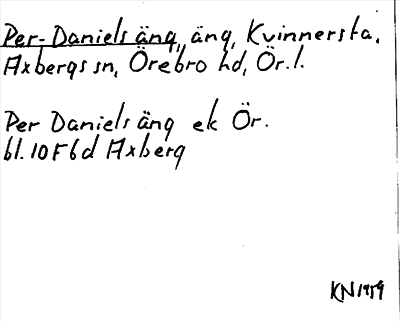 Per-Daniels äng, äng, Kvinnersta,
Axbergs sn, Örebro hd, Ör. l.
Per Daniels äng ek Ör.
bl. 10F6d Axberg
KN 1959